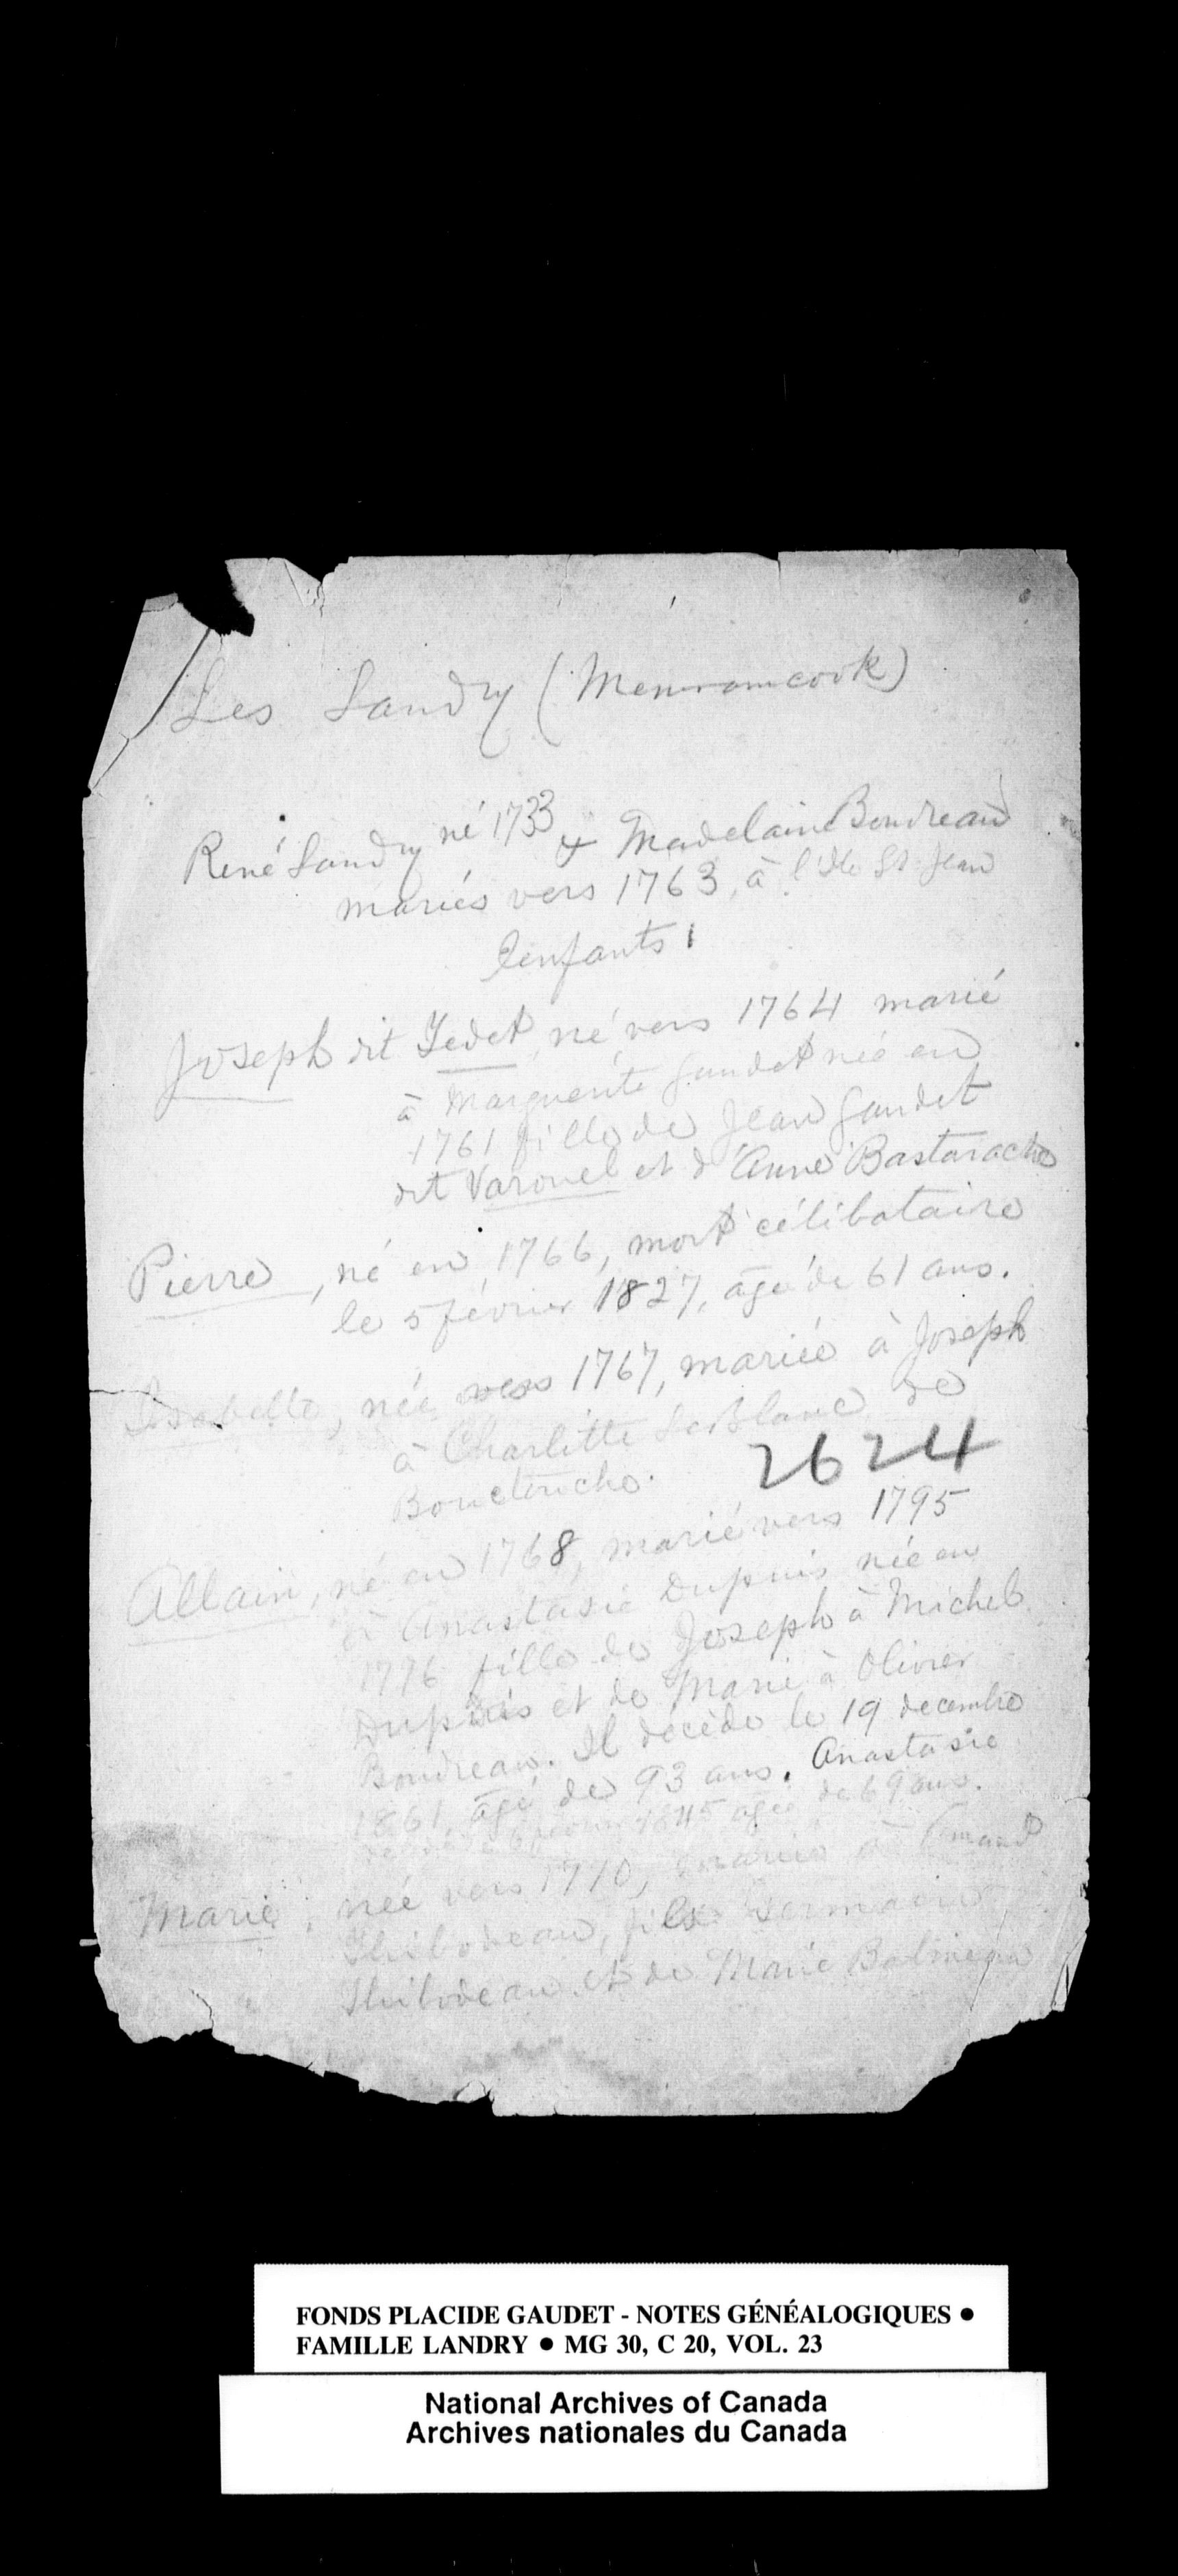 Les Landry (Memramcook)
René Landry né 1733 & Madelaine Boudreau
mariés vers 1763, à l'Ile St Jean
enfants
Joseph dit Jedet, né vers 1764 marié
à Marguerite Gaudet née en
1761 fille de Jean Gaudet
dit Varouel et d'Anne Bastarache
Pierre, né en 1766, mort célibataire
le 5 février 1827, âgé de 61 ans.
Isabelle, née vers 1767, mariée à Joseph
à Charlitte LeBlanc de
Bouctouche.
2624
Allain, né en 1768, marié vers 1795
à Anastasie Dupuis née en
1776 fille de Joseph à Michel
Dupuis et de Marie à Olivier
Boudreau. Il décède le 19 decembre
1861, âgé de 93 ans. Anastasie
1845 âgée de 69 ans.
Marie, née vers 1770, mariée à
Thibodeau, fils Germain
Thibodeau et de Marie Babineau
FONDS PLACIDE GAUDET - NOTES GÉNÉALOGIQUES ●
FAMILLE LANDRY ● MG 30, C 20, VOL. 23
National Archives of Canada
Archives nationales du Canada